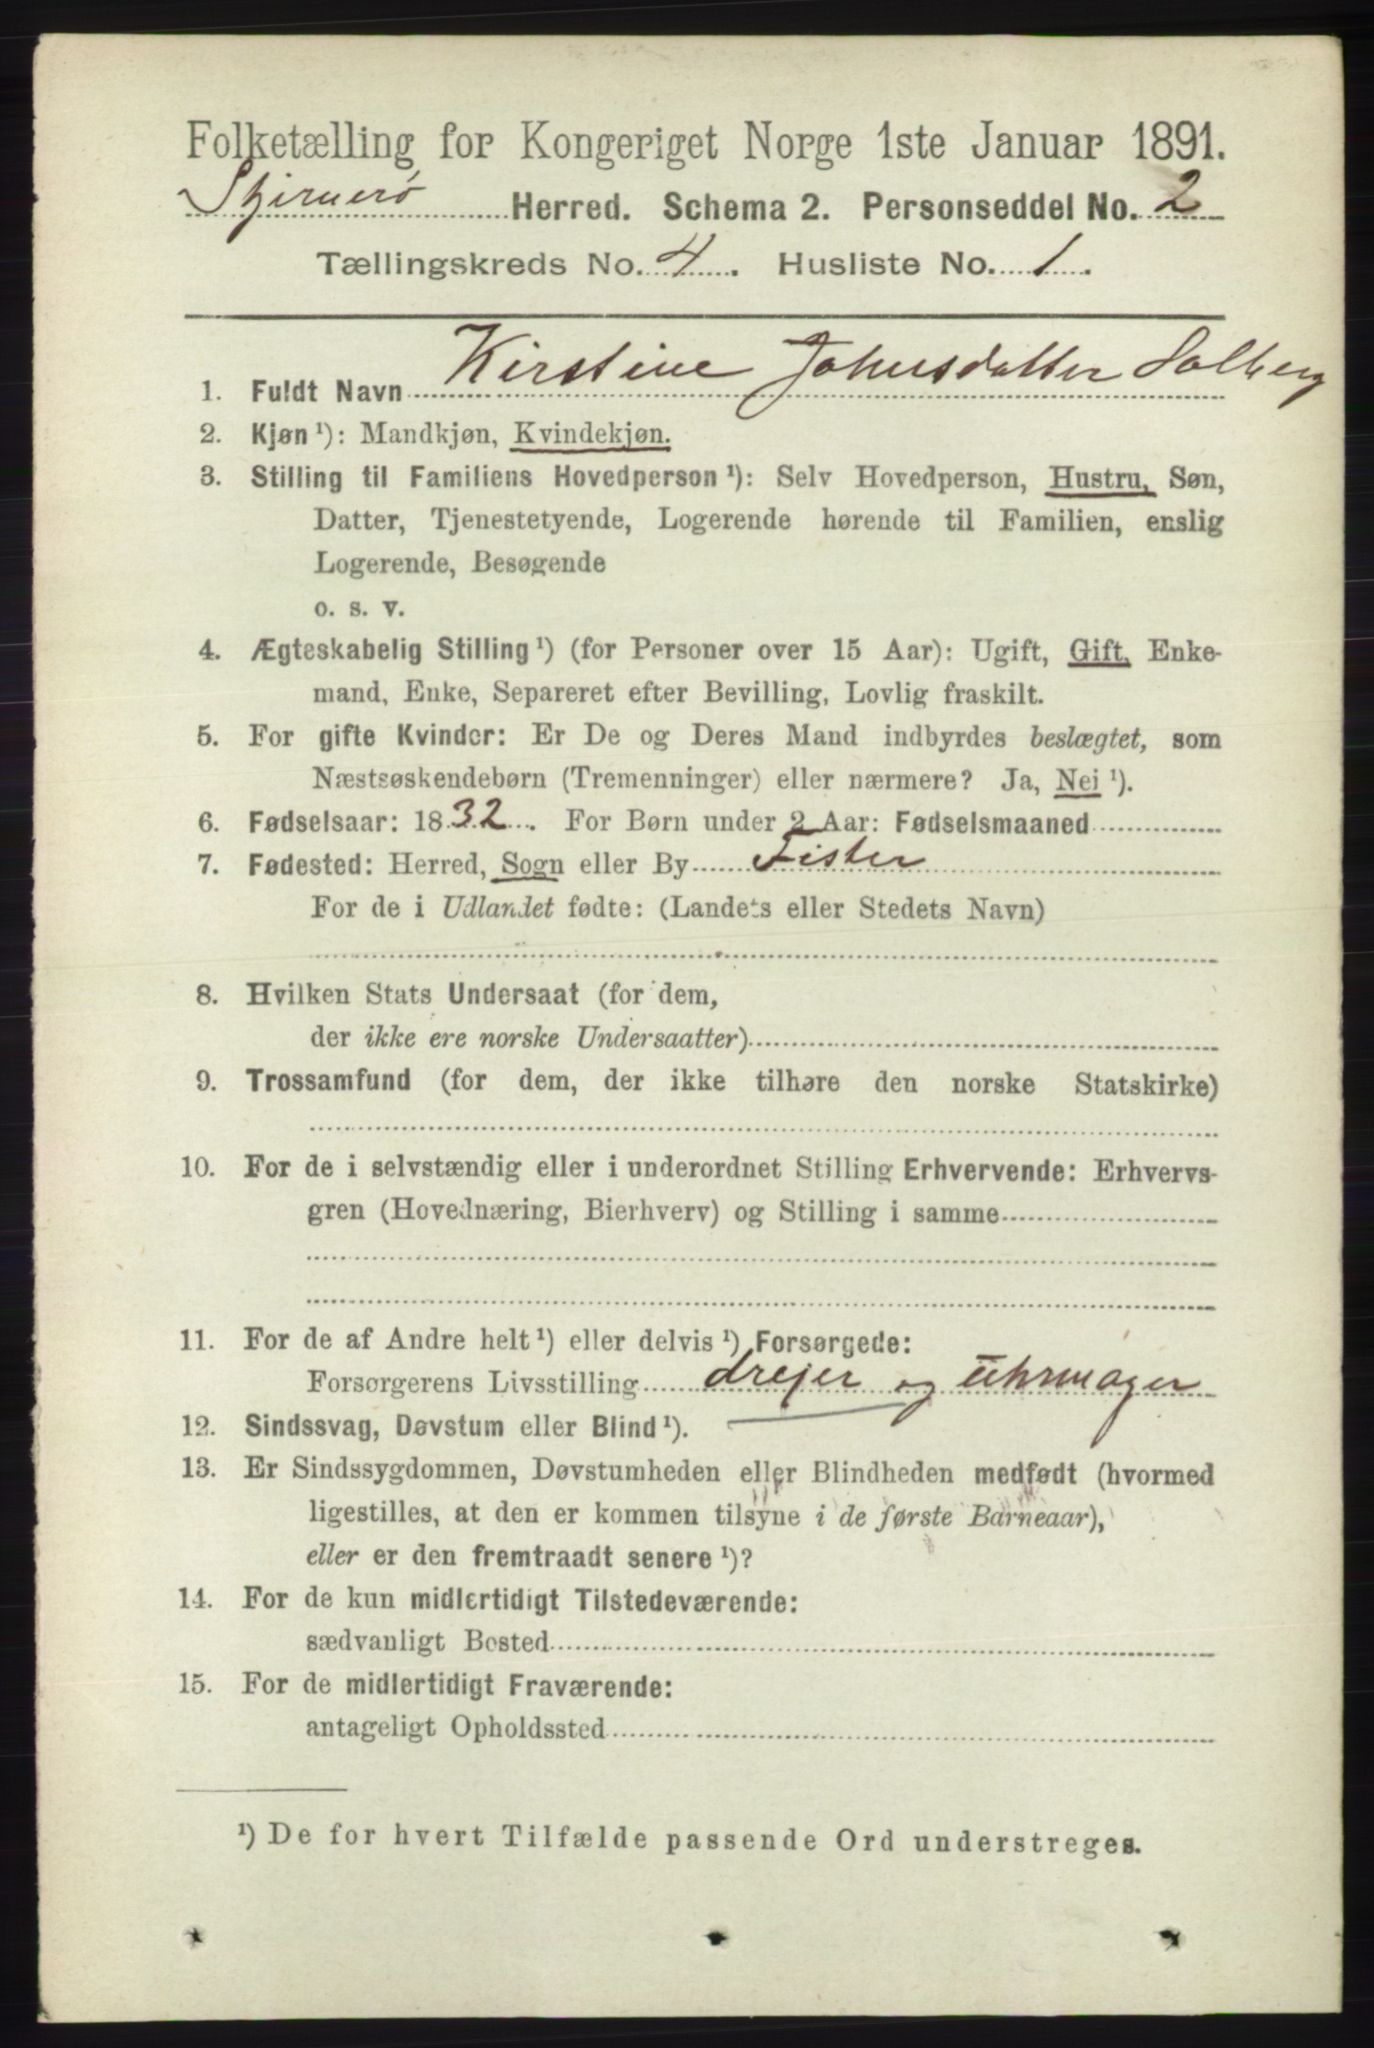 Folketælling for Kongeriget Norge 1ste Januar 1891.
Sjernerø Herred. Schema 2. Personseddel No. 2
Tællingskreds No. 4. Husliste No. 1.
1. Fuldt Navn Kirstine Johnsdatter Solberg
2. Kjøn ¹): Mandkjøn, Kvindekjøn.
3. Stilling til Familiens Hovedperson ¹): Selv Hovedperson, Hustru, Søn,
Datter, Tjenestetyende, Logerende hørende til Familien, enslig
Logerende, Besøgende
o. s. v.
4. Ægteskabelig Stilling ¹) (for Personer over 15 Aar): Ugift, Gift, Enke-
mand, Enke, Separeret efter Bevilling, Lovlig fraskilt.
5. For gifte Kvinder: Er De og Deres Mand indbyrdes beslægtet, som
Næstsøskendebørn (Tremenninger) eller nærmere? Ja, Nei ¹).
6. Fødselsaar: 1832. For Børn under 2 Aar: Fødselsmaaned
7. Fødested: Herred, Sogn eller By Fister
For de i Udlandet fødte: (Landets eller Stedets Navn)
8. Hvilken Stats Undersaat (for dem,
der ikke ere norske Undersaatter)
9. Trossamfund (for dem, der ikke tilhøre den norske Statskirke)
10. For de i selvstændig eller i underordnet Stilling Erhvervende: Erhvervs-
gren (Hovednæring, Bierhverv) og Stilling i samme
11. For de af Andre helt ¹) eller delvis ¹) Forsørgede:
Forsørgerens Livsstilling drejer og uhrmager
12. Sindssvag, Døvstum eller Blind ¹).
13. Er Sindssygdommen, Døvstumheden eller Blindheden medfødt (hvormed
ligestilles, at den er kommen tilsyne i de første Barneaar),
eller er den fremtraadt senere ¹)?
14. For de kun midlertidigt Tilstedeværende:
sædvanligt Bosted
15. For de midlertidigt Fraværende:
antageligt Opholdssted
¹) De for hvert Tilfælde passende Ord understreges.